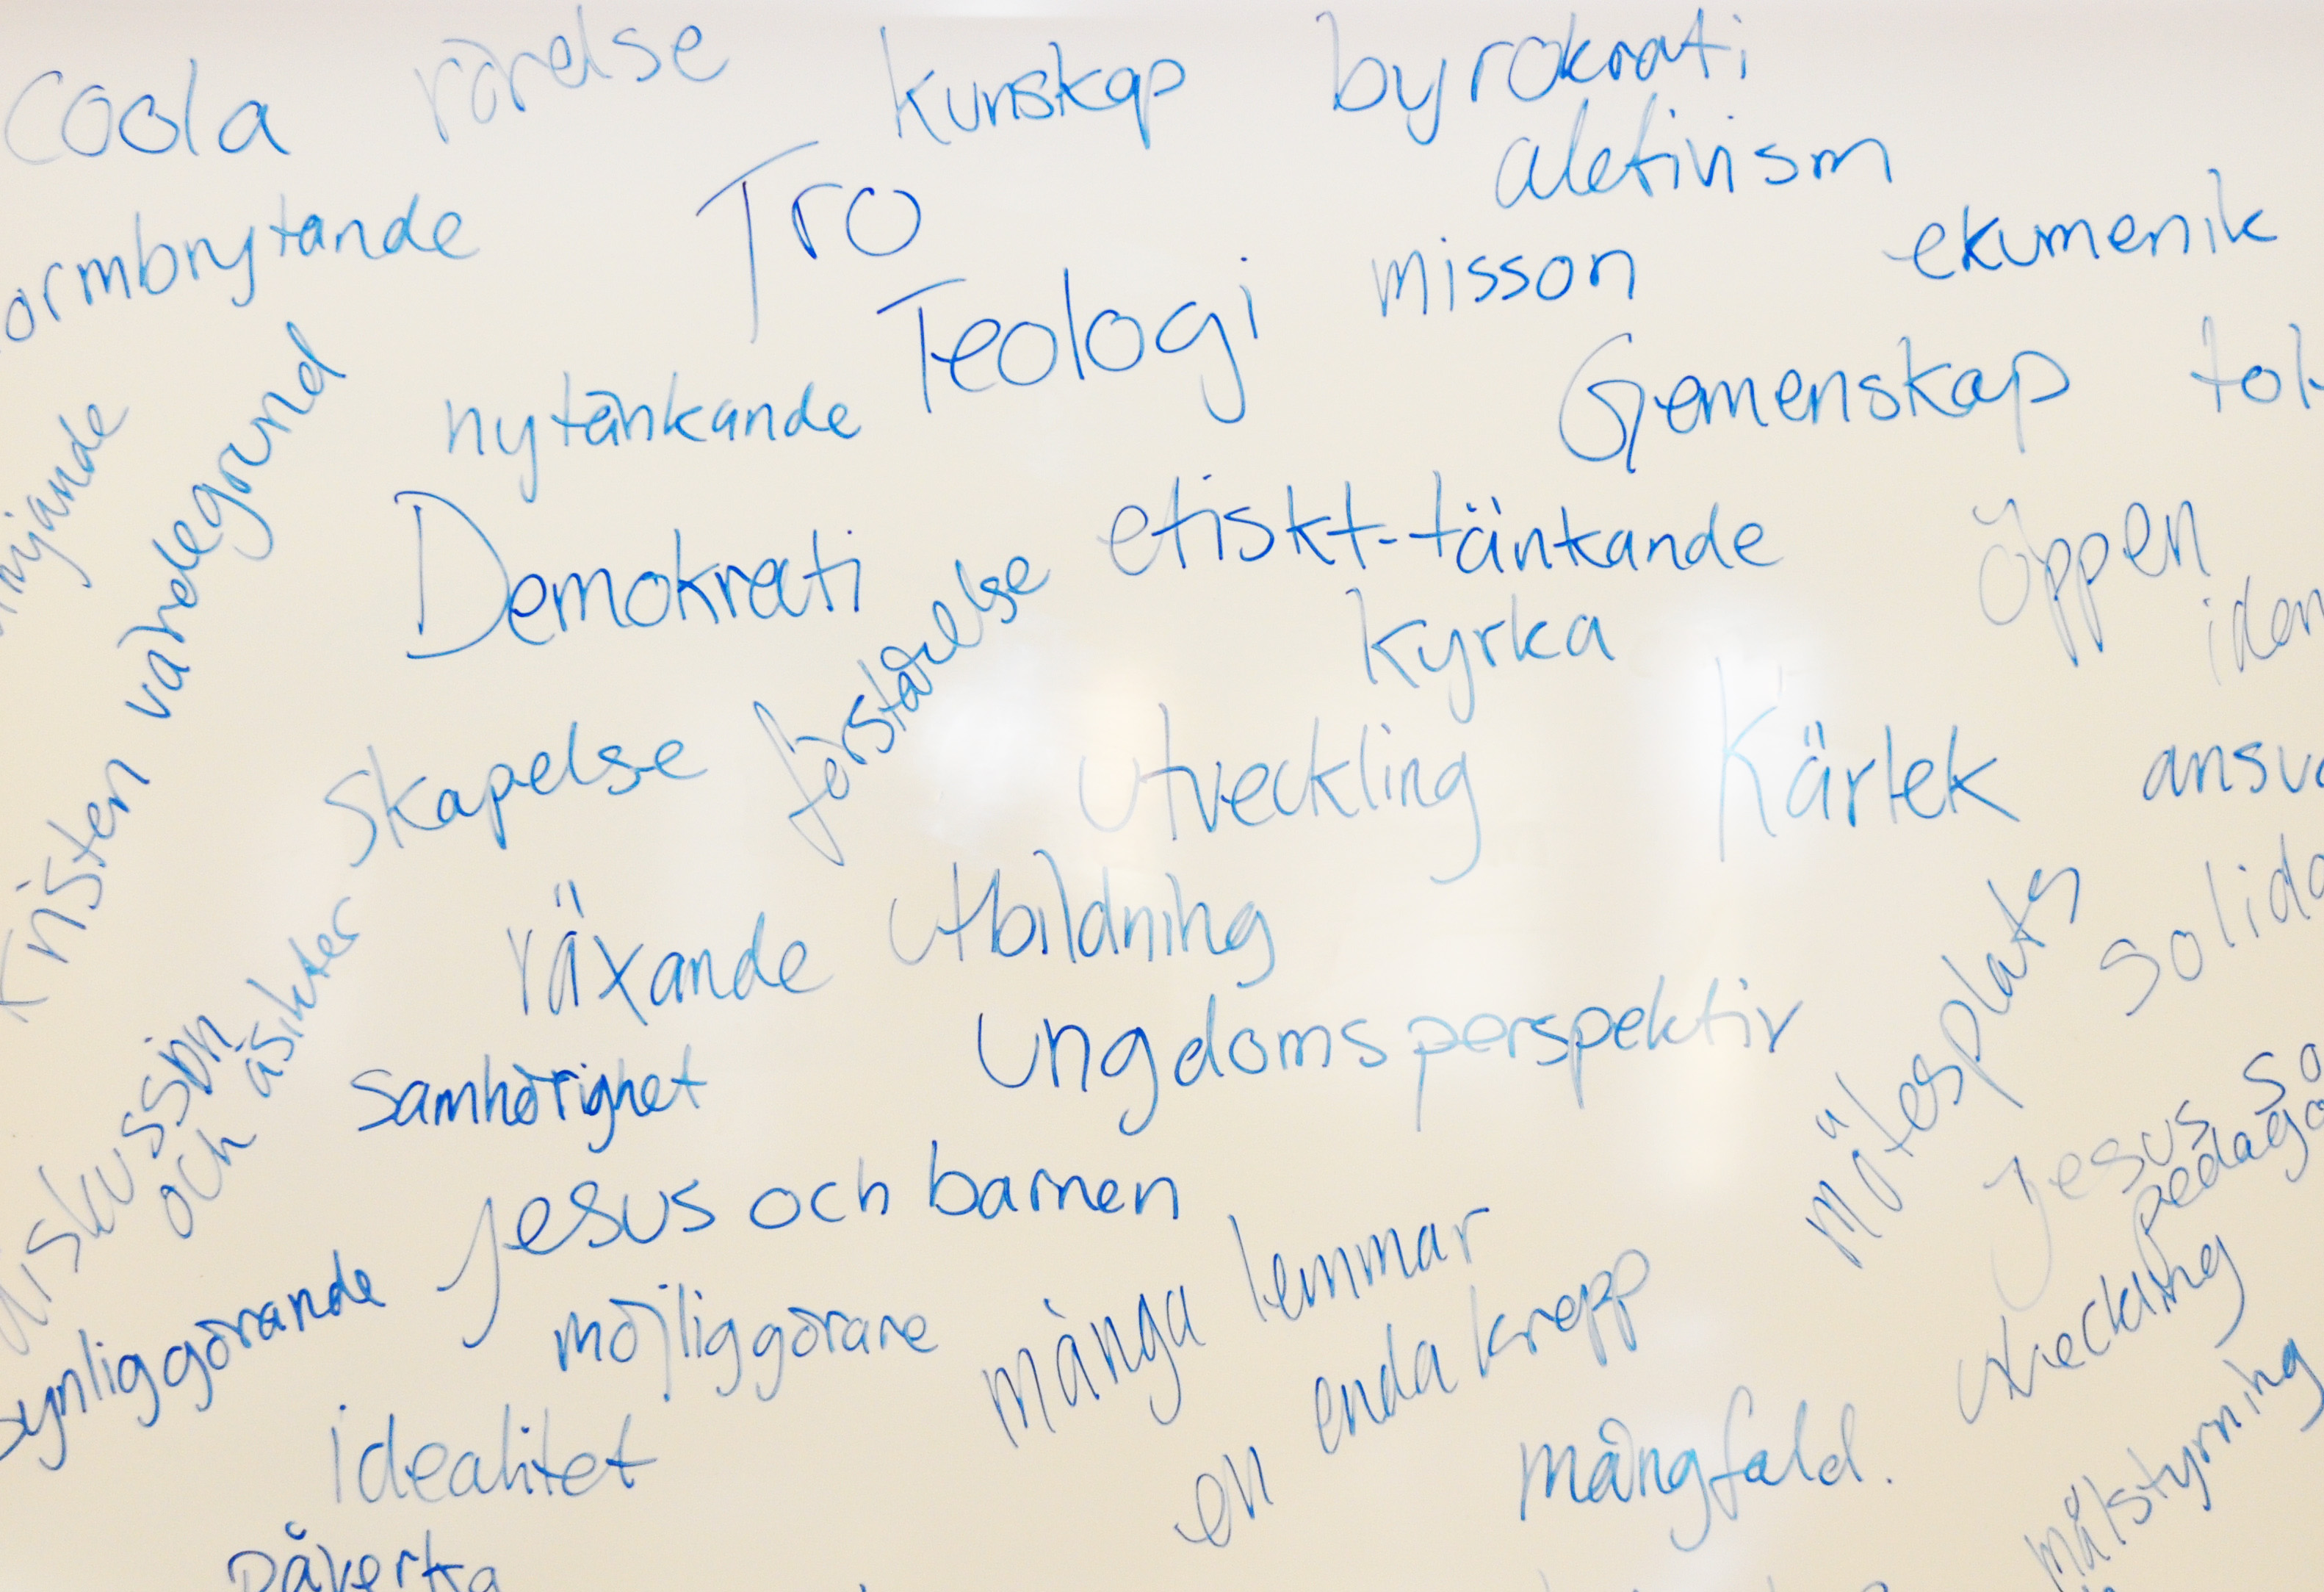 Coola
rörelse
kunskap
byrokrati
aktivism
ormbrytande
Tro
Teologi
misson
ekumenik
nytänkande
Gemenskap
tol
Kristen värdegrund
Demokrati
etiskt-tänkande
öppen
iden
kyrka
skapelse
förståelse
utveckling
Kärlek
ansva
växande
utbildning
mötesplats
solida
diskussion
och åsikter
samhörighet
Ungdomsperspektiv
Jesus och barnen
Jesus so
pedago
synliggörande
möjliggörare
många lemmar
en enda kropp
utveckling
idealitet
mångfald.
målstyrning
påverka